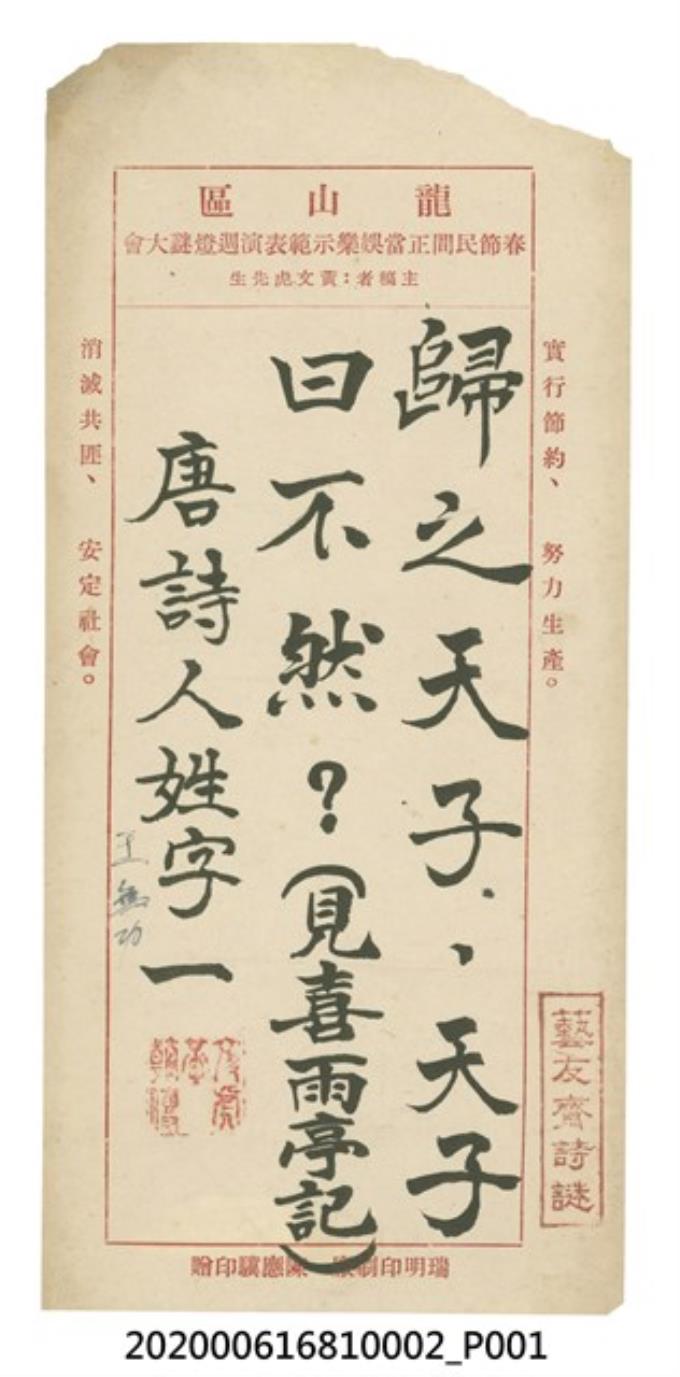 龍山區
春節民間正當娛樂示範表演週燈謎大會
主稿者：黃文虎先生
實行節約、努力生產。
歸之天子，天子
曰不然？（見喜雨亭記）
唐詩人姓字一
王無功
消滅共匪、安定社會。
藝友齋詩謎
瑞明印刷
陳應驥印贈
202000616810002_P001